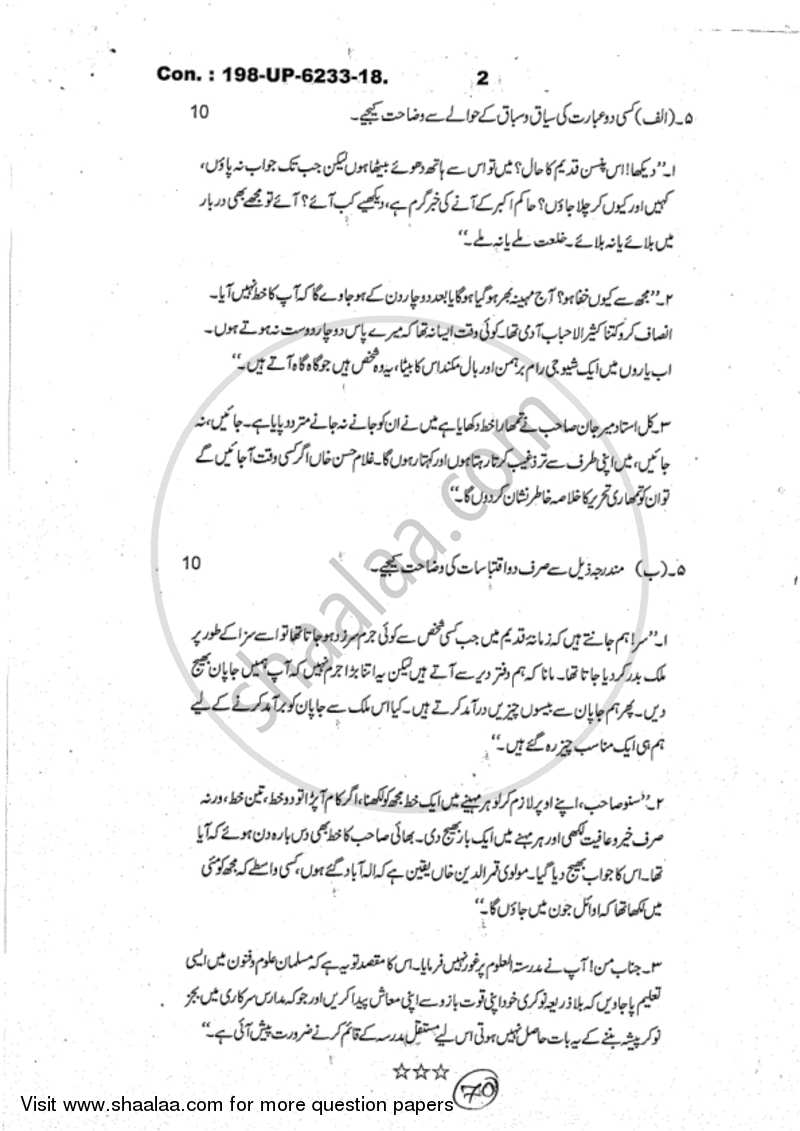 Con. : 198-UP-6233-18. 2
۵۔(الف) کسی دو عبارت کی سیاق و سباق کے حوالے سے وضاحت کیجیے۔ 10
۱۔’’دیکھا! اس پنسن قدیم کا حال؟ میں تو اس سے ہاتھ دھوئے بیٹھا ہوں لیکن جب تک جواب نہ پاؤں،
کہیں اور کیوں کر چلا جاؤں؟ حاکم اکبر کے آنے کی خبر گرم ہے، دیکھیے کب آئے؟ آئے تو مجھے بھی دربار
میں بلائے یا نہ بلائے۔ خلعت ملے یا نہ ملے۔‘‘
۲۔’’مجھ سے کیوں خفا ہو؟ آج مہینہ بھر ہو گیا ہوگا یا بعد دو چار دن کے ہو جاوے گا کہ آپ کا خط نہیں آیا۔
انصاف کرو کتنا کثیر الاحباب آدمی تھا۔ کوئی وقت ایسا نہ تھا کہ میرے پاس دو چار دوست نہ ہوتے ہوں۔
اب یاروں میں ایک شیو جی رام برہمن اور بال مکند اس کا بیٹا، یہ دو شخص ہیں جو گاہ گاہ آتے ہیں۔‘‘
۳۔ کل استاد میر جان صاحب نے تمھارا خط دکھایا ہے میں نے ان کو جانے نہ جانے متردد پایا ہے۔ جائیں، نہ
جائیں، میں اپنی طرف سے ترغیب کرتا رہتا ہوں اور کہتا رہوں گا۔ غلام حسن خاں اگر کسی وقت آ جائیں گے
تو ان کو تمھاری تحریر کا خلاصہ خاطر نشان کر دوں گا۔‘‘
۵۔(ب) مندرجہ ذیل سے صرف دو اقتباسات کی وضاحت کیجیے۔ 10
۱۔’’سر! ہم جانتے ہیں کہ زمانۂ قدیم میں جب کسی شخص سے کوئی جرم سرزد ہو جاتا تھا تو اسے سزا کے طور پر
ملک بدر کر دیا جاتا تھا۔ مانا کہ ہم دفتر دیر سے آتے ہیں لیکن یہ اتنا بڑا جرم نہیں کہ آپ ہمیں جاپان بھیج
دیں۔ پھر ہم جاپان سے بیسوں چیزیں درآمد کرتے ہیں۔ کیا اس ملک سے جاپان کو برآمد کرنے کے لیے
ہم ہی ایک مناسب چیز رہ گئے ہیں۔‘‘
۲۔’’سنو صاحب، اپنے اوپر لازم کر لو ہر مہینے میں ایک خط مجھ کو لکھنا، اگر کام آ پڑا تو دو خط، تین خط، ورنہ
صرف خیر و عافیت لکھی اور ہر مہنے میں ایک بار بھیج دی۔ بھائی صاحب کا خط بھی دس بارہ دن ہوئے کہ آیا
تھا۔ اس کا جواب بھیج دیا گیا۔ مولوی قمرالدین خاں یقین ہے کہ الہ آباد گئے ہوں، کسی واسطے کہ مجھ کو مئی
میں لکھا تھا کہ اوائل جون میں جاؤں گا۔‘‘
۳۔ جناب من! آپ نے مدرستہ العلوم پر غور نہیں فرمایا۔ اس کا مقصد تو یہ ہے کہ مسلمان علوم و فنون میں ایسی
تعلیم پا جاویں کہ بلا ذریعہ نوکری خود اپنی قوت بازو سے اپنی معاش پیدا کریں اور جو کہ مدارس سرکاری میں بجز
نوکر پیشہ بننے کے یہ بات حاصل نہیں ہوتی اس لیے مستقل مدرسہ کے قائم کرنے ضرورت پیش آئی ہے۔‘‘
☆☆☆
70
Visit www.shaalaa.com for more question papers
shaalaa.com